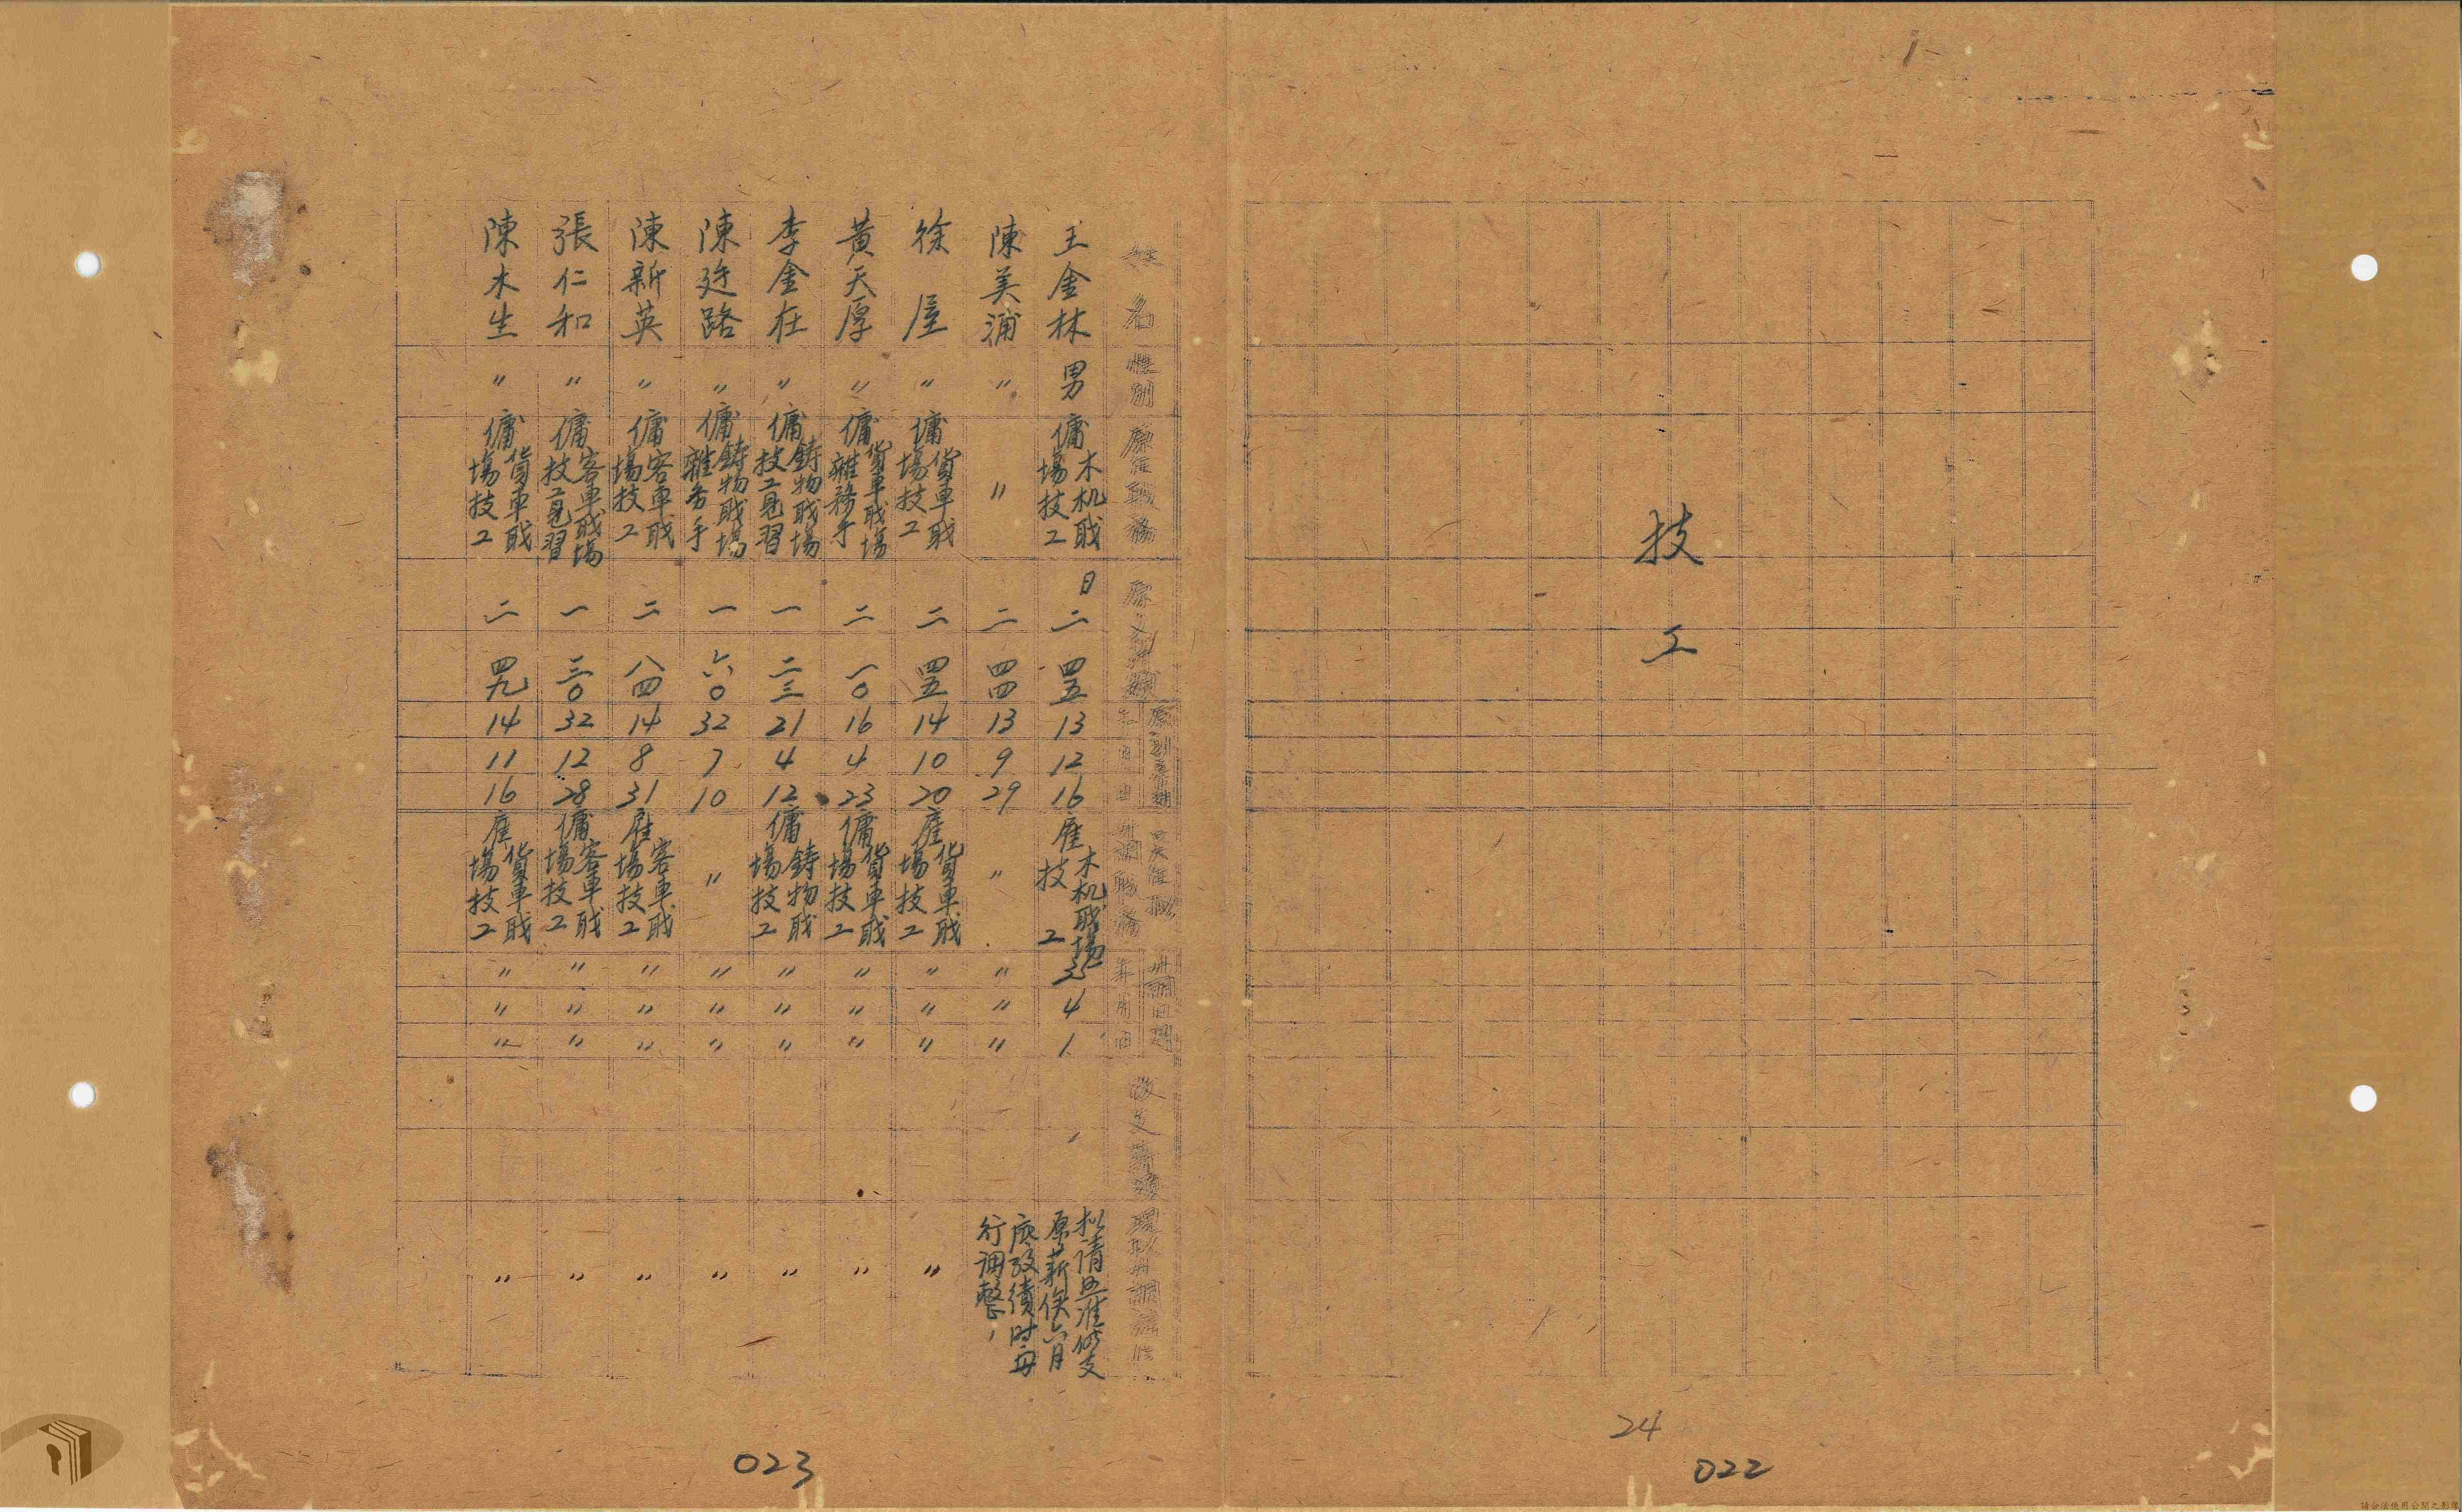 技工
24
022
姓名
性別
原任職務
原支薪額
年月日
王金林 男 傭木机戝場技工 日二 四五 13 12 16 雇木机戝場技工 35 4 1 拟請照准仍支原薪俟六月底攷績时再行調整
陳美浦 〃 〃 二 四四 13 9 29 〃 〃 〃 〃
徐屋 〃 傭貨車戝場技工 二 四五 14 10 20 雇貨車戝場技工 〃 〃 〃 〃
黃天厚 〃 傭貨車戝場雜務手 二 一〇 16 4 23 傭貨車戝場技工 〃 〃 〃 〃
李金在 〃 傭鋳物戝場技工見習 一 二三 21 4 12 傭鋳物戝場技工 〃 〃 〃 〃
陳廷路 〃 傭鋳物戝場雜务手 一 六〇 32 7 10 〃 〃 〃 〃 〃
陳新英 〃 傭客車戝場技工 二 八四 14 8 31 雇客車戝場技工 〃 〃 〃 〃
張仁和 〃 傭客車戝場技工見習 一 三〇 32 12 28 傭客車戝場技工 〃 〃 〃 〃
陳木生 〃 傭貨車戝場技工 二 四九 14 11 16 雇貨車戝場技工 〃 〃 〃 〃
023